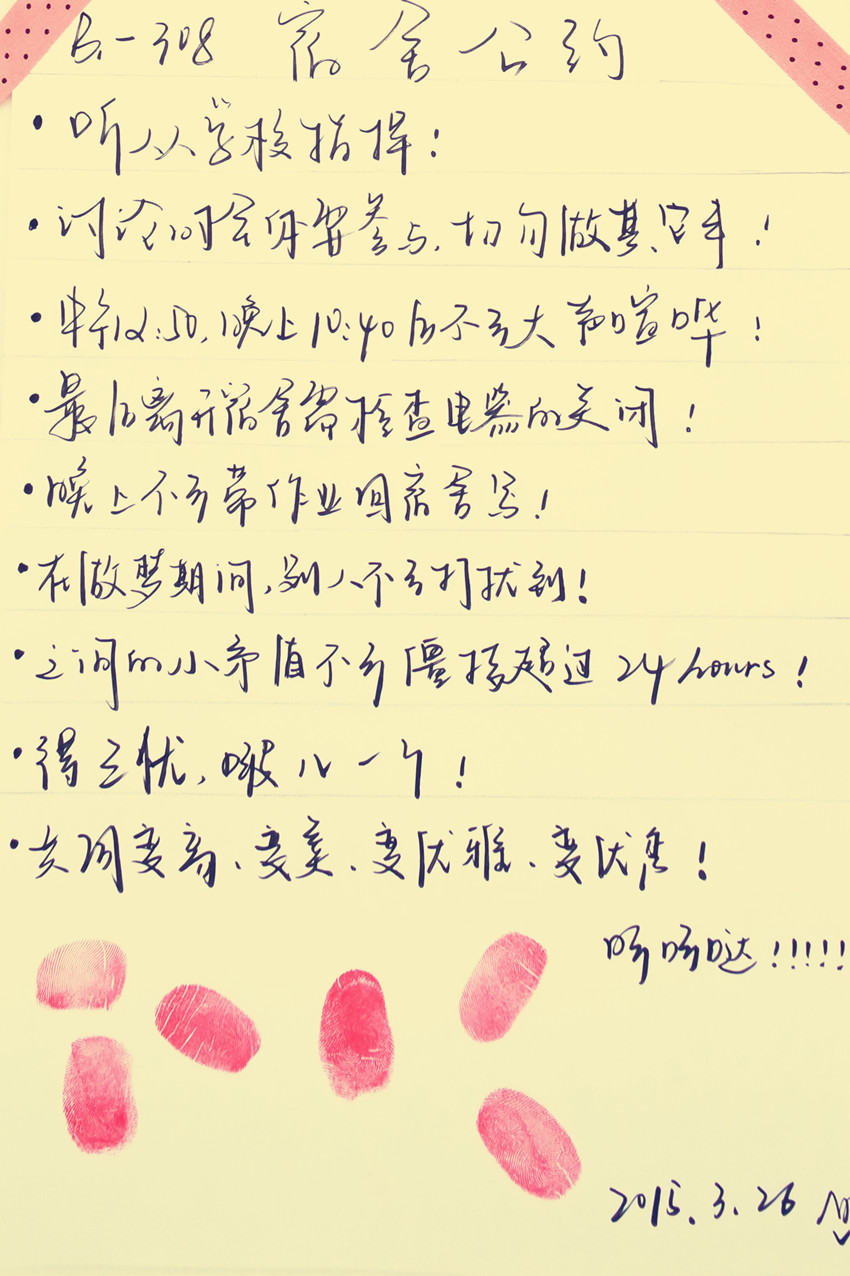 B-308 宿舍公约
·听从学校指挥!
·讨论时全身要参与,切勿做其它事!
·中午12:50,晚上10:40后不可大声喧哗!
·最后离开宿舍需检查电器的关闭!
·晚上不可带作业回宿舍写!
·在做梦期间,别人不可打扰到!
·之间的小矛盾不可僵持超过24hours!
·得三优,啵儿一个!
·共同变高、变美、变优雅、变优秀!
呵呵哒!!!!!
2015.3.26